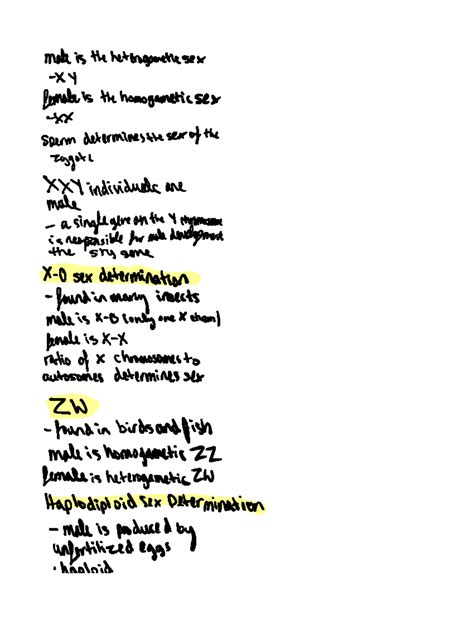 male is the heterogametic sex
-XY
female is the homogametic sex
-XX
sperm determines the sex of the
zygote
XXY individuals are
male
- a single gene on the Y chromosome
is responsible for male development
the sry gene
X-O sex determination
- found in many insects
male is X-O (only one X chrom)
female is X-X
ratio of X chromosomes to
autosomes determines sex
ZW
- found in birds and fish
male is homogametic ZZ
female is heterogametic ZW
Haplodiploid Sex Determination
- male is produced by
unfertilized eggs
· haploid